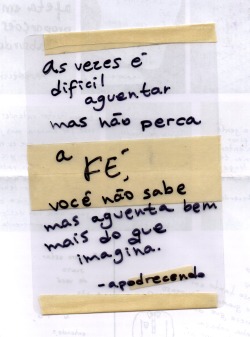 as vezes é
difícil
aguentar
mas não perca
a
FÉ,
você não sabe
mas aguenta bem
mais do que
imagina.
- apodrecendo